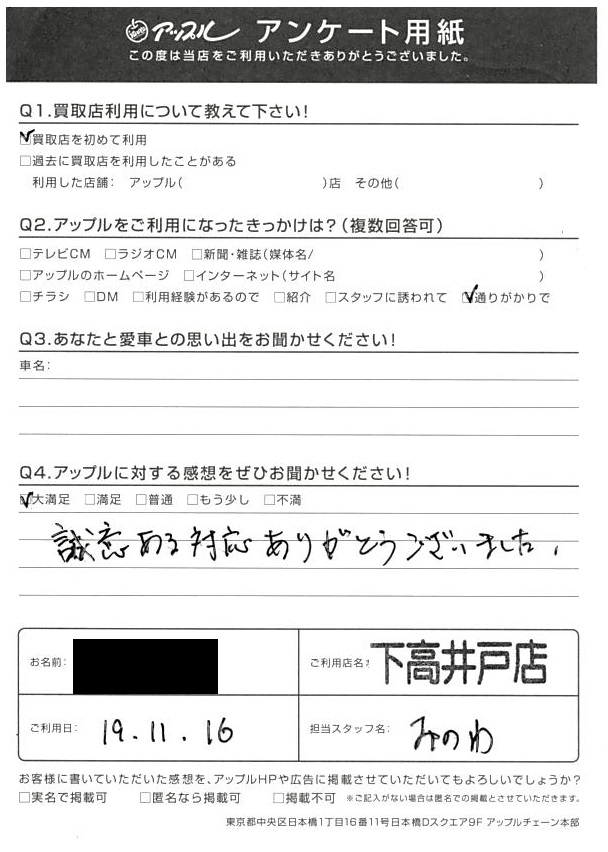 アップル アンケート用紙
この度は当店をご利用いただきありがとうございました。
Q1.買取店利用について教えて下さい!
☑買取店を初めて利用
□過去に買取店を利用したことがある
利用した店舗: アップル( )店 その他( )
Q2.アップルをご利用になったきっかけは?(複数回答可)
□テレビCM □ラジオCM □新聞・雑誌(媒体名/ )
□アップルのホームページ □インターネット(サイト名 )
□チラシ □DM □利用経験があるので □紹介 □スタッフに誘われて ☑通りがかりで
Q3.あなたと愛車との思い出をお聞かせください!
車名:
Q4.アップルに対する感想をぜひお聞かせください!
☑大満足 □満足 □普通 □もう少し □不満
誠意ある対応ありがとうございました。
お名前:
ご利用店名: 下高井戸店
ご利用日: 19.11.16
担当スタッフ名: みのわ
お客様に書いていただいた感想を、アップルHPや広告に掲載させていただいてもよろしいでしょうか?
□実名で掲載可 □匿名なら掲載可 □掲載不可 ※ご記入がない場合は匿名での掲載とさせていただきます。
東京都中央区日本橋1丁目16番11号日本橋Dスクエア9F アップルチェーン本部